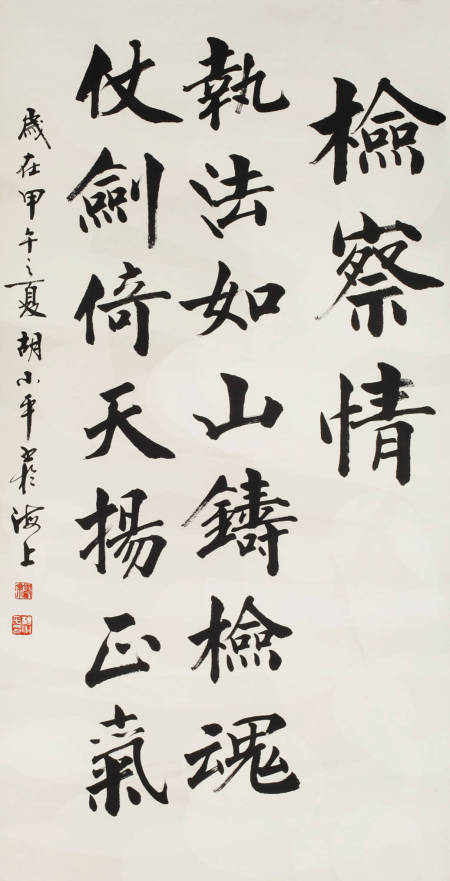 檢察情
執法如山鑄檢魂
仗劍倚天揚正氣
歲在甲午之夏胡小平書於海上